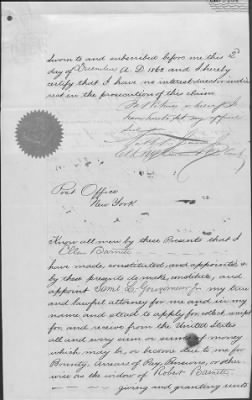 Sworn to and subscribed before me this 2d
day of December A.D. 1862 and I hereby
certify that I have no interest direct or indi
rect in the prosecution of this claim
In Witness whereof I
have hereto set my official
Post Office
New York
Know all men by these Presents that I
Ellen Barrett
have made, constituted, and appointed &
by these presents do make, constitute, and
appoint Saml L. Gouverneur Jr my true
and lawful attorney for me and in my
name and stead to apply for collect receipt
for, and receive from the United States
all and every sum or sums of money
which may be, or become due to me for
Bounty, Arrears of Pay, Pensions, or other-
wise as the widow of Robert Barrett
giving and granting unto